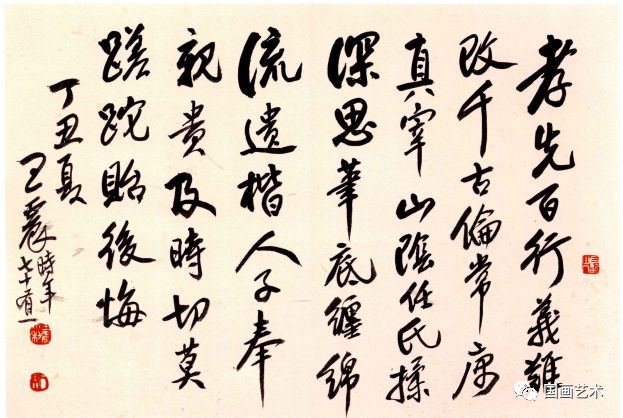 孝先百行義難
改千古倫常属
真宰山陰任氏操
深思筆底纏綿
流遺楷人子奉
親貴及時切莫
蹉跎貽後悔
丁丑夏
王震時年七十有一
国画艺术